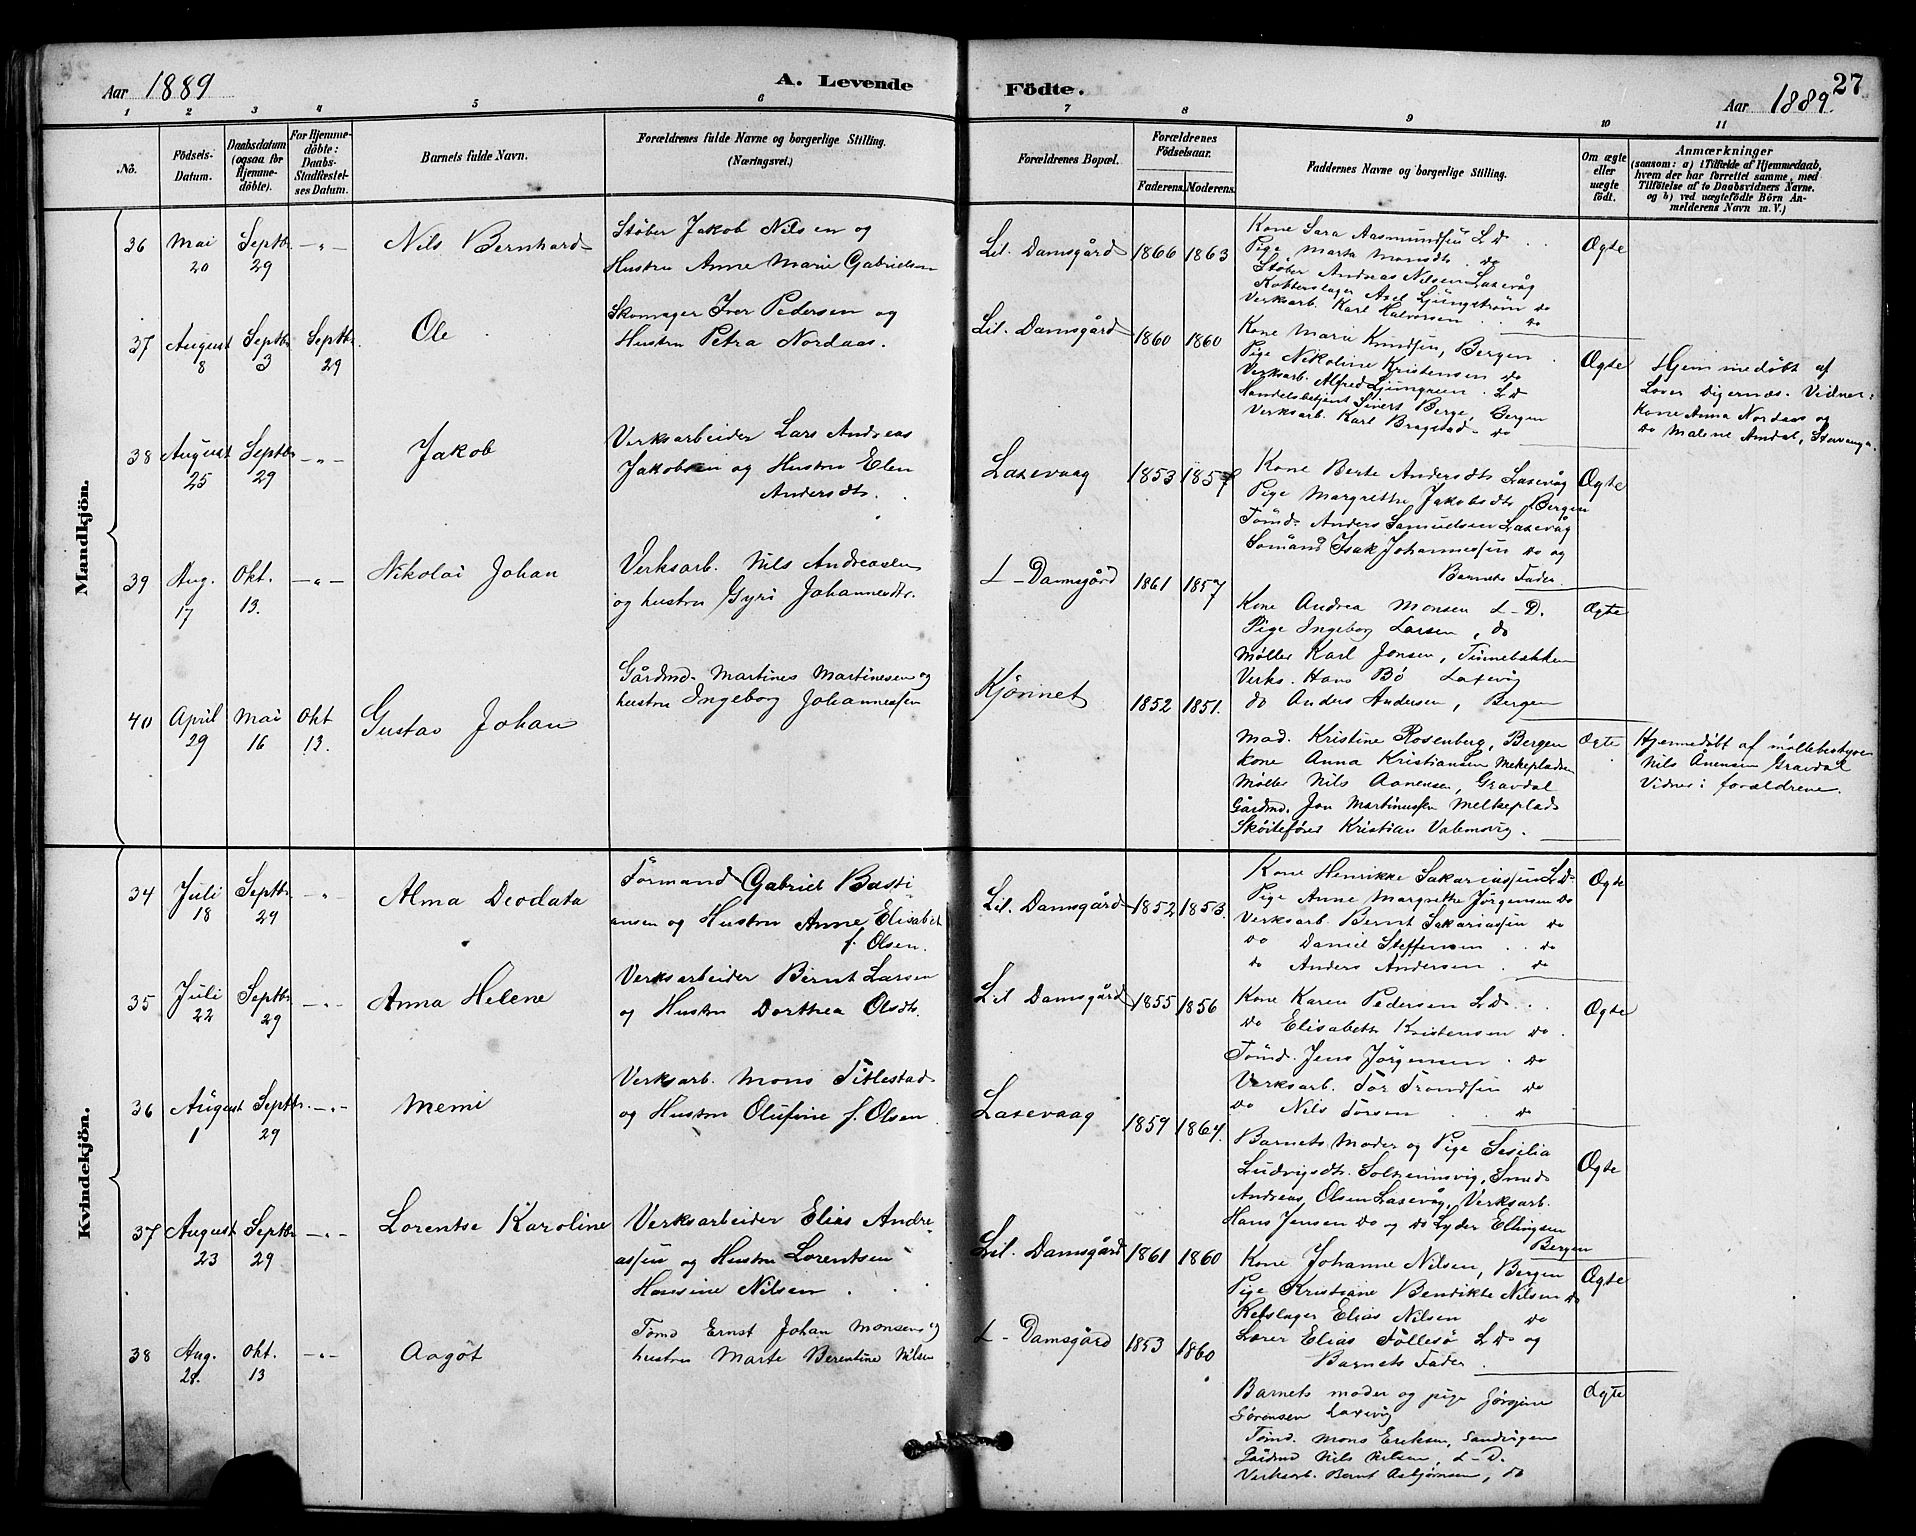 Aar 1889
A. Levende Födte.
27
Aar 1889.
1 2 3 4 5 6 7 8 9 10 11
No.
Födsels-Datum.
Daabsdatum (ogsaa for Hjemmedöbte).
For Hjemmedöbte: Daabs-Stadfæstelses Datum.
Barnets fulde Navn.
Forældrenes fulde Navne og borgerlige Stilling. (Næringsvei.)
Forældrenes Bopæl.
Forældrenes Födselsaar.
Faderens. Moderens.
Faddernes Navne og borgerlige Stilling.
Om ægte eller uægte födt.
Anmærkninger
(saasom: a) i Tilfælde af Hjemmedaab,
hvem der har forrettet samme, med
Tilföielse af to Daabsvidners Navne.
og b) ved uægtefödte Börn Anmelderens Navn m. V.)
Mandkjön.
36 Mai 20 Septbr 29 -"- Nils Bernhard
Støber Jakob Nilsen og
Hustru Anne Marie Gabrielsen
Lil. Damsgård 1866 1863
Kone Sara Aasmundsen L D.
Pige Marta Monsdtr. do
Støber Andreas Nilsen Laxevåg
Kobberslager Axel Ljungstrøm do
Verksarb. Karl Halvorsen do
Ægte
37 August 8 Septbr 3 Septbr. 29 Ole
Skomager Iver Pedersen og
Hustru Petra Nordaas.
Lil. Damsgård 1860 1860
Kone Marie Knudsen, Bergen
Pige Nikoline Kristensen do
Verksarb. Alfred Ljungreen L D
Handelsbetjent Sivert Berge, Bergen
Verksarb. Karl Bragstad do
Ægte
Hjemmedøbt af
Lærer Digernæs. Vidner:
Kone Anna Nordaas og
do Malene Amdal, Stavanger.
38 August 25 Septbr 29 -"- Jakob
Verksarbeider Lars Andreas
Jakobsen og Hustru Elen
Andersdtr.
Laxevaag 1853 1857
Kone Berte Andersdtr Laxevåg
Pige Margrethe Jakobsdtr Bergen
Tømd. Anders Samuelsen Laxevåg
Sømand Isak Johannessen do og
Barnets Fader.
Ægte
39 Aug. 17 Okt. 13. -"- Nikolai Johan
Verksarb. Nils Andreassen
og hustru Gyri Johannesdtr.
L-Damsgård 1861 1857
Kone Andrea Monsen L-D.
Pige Ingeborg Larsen, do
Møller Karl Jonsen, Tinnebakken
Verks. Hans Bø Laxevåg
do Anders Andersen, Bergen
Ægte
40 April 29 Mai 16 Okt 13. Gustav Johan
Gårdmd. Martines Martinesen og
hustru Ingeborg Johannessen
Kjørinet 1852 1851.
Mad. Kristine Rosenberg, Bergen
Kone Anna Kristiansen Melkepladsen
Møller Nils Aanensen, Gravdal
Gårdmd. Jon Martinussen Melkeplads
Skøitefører Kristian
Ægte
Hjemmedøbt af møllebestyrer
Nils Ånensen Gravdal
Vidner: forældrene.
Kvindekjön.
34 Juli 18 Septbr. 29 -"- Alma Deodata
Formand Gabriel Basti
ansen og Hustru Anne Elisabet
f. Olsen.
Lil. Damsgård 1852 1853.
Kone Henrikke Sakariassen L D.
Pige Anne Margrethe Jørgensen do
Verksarb Bernt Sakariassen do
do Daniel Steffensen do
do Anders Andersen do
Ægte
35 Juli 22 Septbr 29 -"- Anna Helene
Verksarbeider Bernt Larsen
og Hustru Dorthea Olsdtr.
Lil Damsgård 1855 1856
Kone Karen Pedersen L D.
do Elisabeth Kristensen do
Tømd. Jens Jørgensen do
Verksarb. Tor Trondsen do
do Nils Torsen do
Ægte
36 August 1 Septbr. 29 -"- Memi
Verksarb. Mons Titlestad
og Hustru Olufine f. Olsen
Laxevaag 1859 1864.
Barnets Moder og Pige Sesilia
Ludvigsdtr. Solheimsvig, Smed
Andreas Olsen Laxevåg, Verksarb.
Hans Jensen do og do Lyder Ellingsen
Bergen
Ægte
37 August 23 Septbr 29 -"- Lorentse Karoline
Verksarbeider Elias Andre-
assen og Hustru Lorentsen
Hansine Nilsen
Lil. Damsgård 1861 1860
Kone Johanne Nilsen, Bergen
Pige Kristiane Bendikte Nilsen do
Rebslager Elias Nilsen do
Lærer Elias Tøllesø L D. og
Barnets Fader.
Ægte
38 Aug. 28. Okt. 13 -"- Aagot
Tømd Ernst Johan Monsen og
hustru Marte Berentine Nilsen
L-Damsgård 1853 1860
Barnets moder og pige Jørgine
Sørensen Laxevåg
Tømd. Mons Eriksen, Sandvigen
Gårdmd Nils Nilsen, L-D.
Verksarb. Bernt Asbjørnsen, do
Ægte